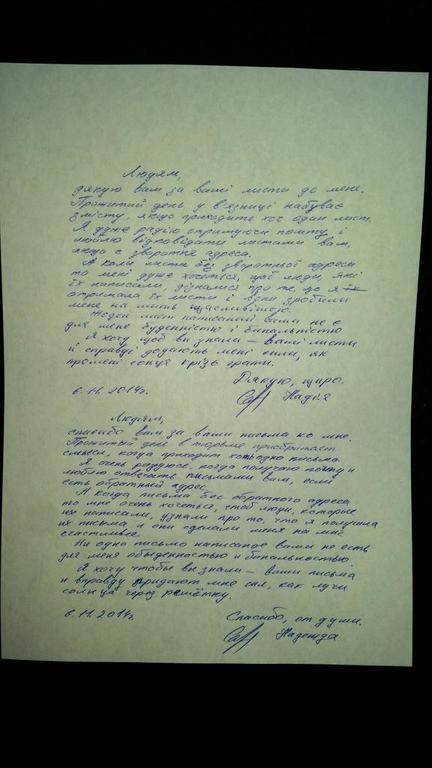 Людям,
дякую вам за ваші листи до мене.
Прожитий день у в'язниці набуває
змісту, якщо приходить хоч один лист.
Я дуже радію отримуючи пошту і
люблю відповідати листами вам,
якщо є зворотня адреса.
А коли листи без зворотньої адреси
то мені дуже хочеться, щоб люди, які
їх написали, дізнались про те, що я
отримала їх листи і вони зробили
мене на мить щасливішою.
Жоден лист написаний вами не є
для мене буденністю і банальністю
Я хочу щоб ви знали – ваші листи
й справді додають мені сили, як
промені сонця крізь грати.
Дякую, щиро.
6.11.2014г. Надія
Людям,
спасибо вам за ваши письма ко мне.
Прожитый день в тюрьме приобритает
смысл, когда приходит хоть одно письмо.
Я очень радуюсь, когда получаю почту и
люблю отвечать письмами вам, если
есть обратный адрес.
А когда письма без обратного адреса
то мне очень хочеться, чтоб люди, которые
их написали, узнали про то, что я получила
их письма и они сделали меня на миг
счастливее.
Ни одно письмо написаное вами не есть
для меня обыденностью и банальностью.
Я хочу чтобы вы знали – ваши письма
и вправду придают мне сил, как лучи
солнца через решётку.
6.11.2014г. Спасибо, от души.
Надежда